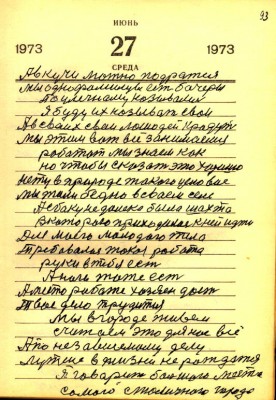 93
ИЮНЬ
1973 27 1973
СРЕДА
А в кучи можно подратся
мы однофамильцы есть
По уличному называли
Я буду их называть свои
А своих свои лошадей крадут
мы этим вот не занимаемся
работать мы знаем как
но чтобы сказать это хорошо
нету в природе такого
мы жили бедно всей
А сбоку недалеко была шахта
в которую приходилось к ней идти
Для моего молодого тела
Требовалась такая работа
руки в тебя есть
А ноги тоже есть
А место работе хозяин даст
Твое дело трудится
Мы в городе живем
считаем это для нас всё
А по независимому делу
лутшее в жизни не рождается
Я говорю большого места
самого столичного города